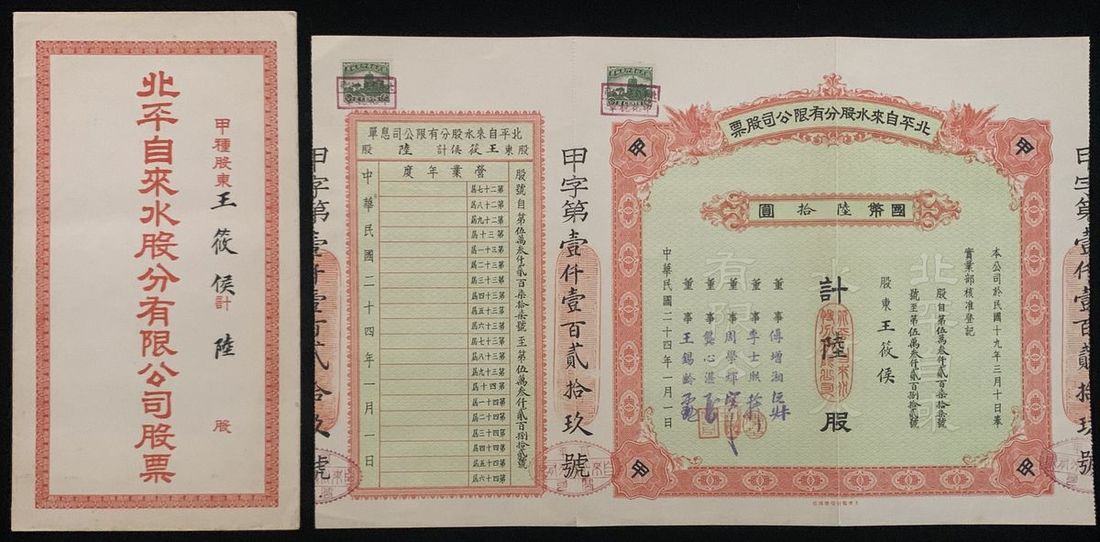 北平自來水股分有限公司股票
甲種股東王筱侯計陸股
北平自來水股分有限公司息單
股東王筱侯計陸股
股號自第伍萬叁仟貳百柒拾柒號至第伍萬叁仟貳百捌拾貳號
營業年度
第二十七屆
第二十八屆
第二十九屆
第三十屆
第三十一屆
第三十二屆
第三十三屆
第三十四屆
第三十五屆
第三十六屆
第三十七屆
第三十八屆
第三十九屆
第四十屆
第四十一屆
第四十二屆
第四十三屆
第四十四屆
第四十五屆
第四十六屆
中華民國二十四年一月一日
甲字第壹仟壹百貳拾玖號
甲字第壹仟壹百貳拾玖號
北平自來水股分有限公司股票
國幣陸拾圓
本公司於民國十九年三月十日奉
實業部核准登記
股自第伍萬叁仟貳百柒拾柒號
號至第伍萬叁仟貳百捌拾貳號
股東王筱侯
計陸股
董事傅增湘
董事李士熙
董事周學輝
董事龔心湛
董事王錫齡
中華民國二十四年一月一日
甲
甲
甲
甲
甲字第壹仟壹百貳拾玖號